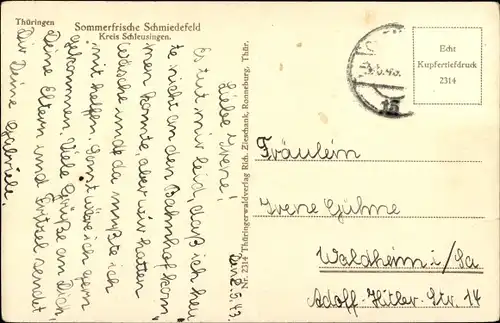 Thüringen
Sommerfrische Schmiedefeld
Kreis Schleusingen.
Den 2.5.43.
Liebe Irene!
Es tut mir leid, daß ich heu
te nicht an den Bahnhof kom
men konnte, aber wir hatten
Wäsche und da mußte ich
mit helfen. Sonst wäre ich gern
gekommen. Viele Grüße an Dich,
Deine Eltern und sendet
Dir Deine Gabriele.
Nr. 2314 Thüringerwaldverlag Rich. Zieschank, Ronneburg, Thür.
15
Echt
Kupfertiefdruck
2314
Fräulein
Irene Gühne
Waldheim i/Sa
Adolf-Hitler-Str. 14